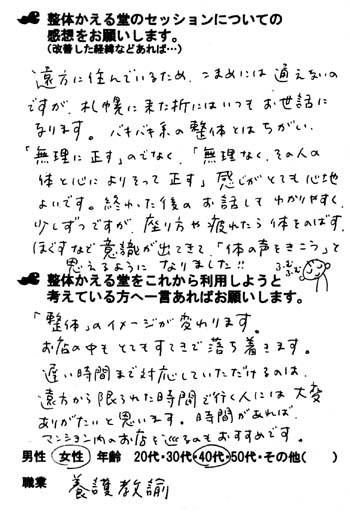 整体かえる堂のセッションについての
感想をお願いします。
(改善した経緯などあれば…)
遠方に住んでいるため、こまめには通えないの
ですが、札幌に来た折にはいつもお世話に
なります。バキバキ系の整体とはちがい、
「無理に正す」のでなく、「無理なく、その人の
体と心によりそって正す」感じがとても心地
よいです。終わった後のお話しもわかりやすく、
少しずつですが、座り方や疲れたら体をのばす、
ほぐすなど意識が出てきて、「体の声をきこう」と
思えるようになりました!! ふむふむ
整体かえる堂をこれから利用しようと
考えている方へ一言あればお願いします。
「整体」のイメージが変わります。
お店の中もとてもすてきで落ち着きます。
遅い時間まで対応していただけるのは、
遠方から限られた時間で行く人には大変
ありがたいと思います。時間があれば、
マンション内のお店を巡るのもおすすめです。
男性 女性 年齢 20代・30代・40代・50代・その他( )
職業 養護教諭